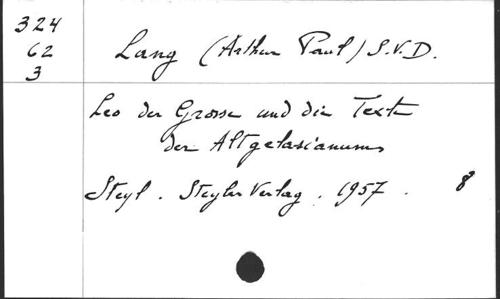 324
62
3
Lang (Arthur Paul) S.V.D.
Leo der Grosse und die Texte
der Altgelasianums
Steyl. Steyler Verlag. 1957. 8